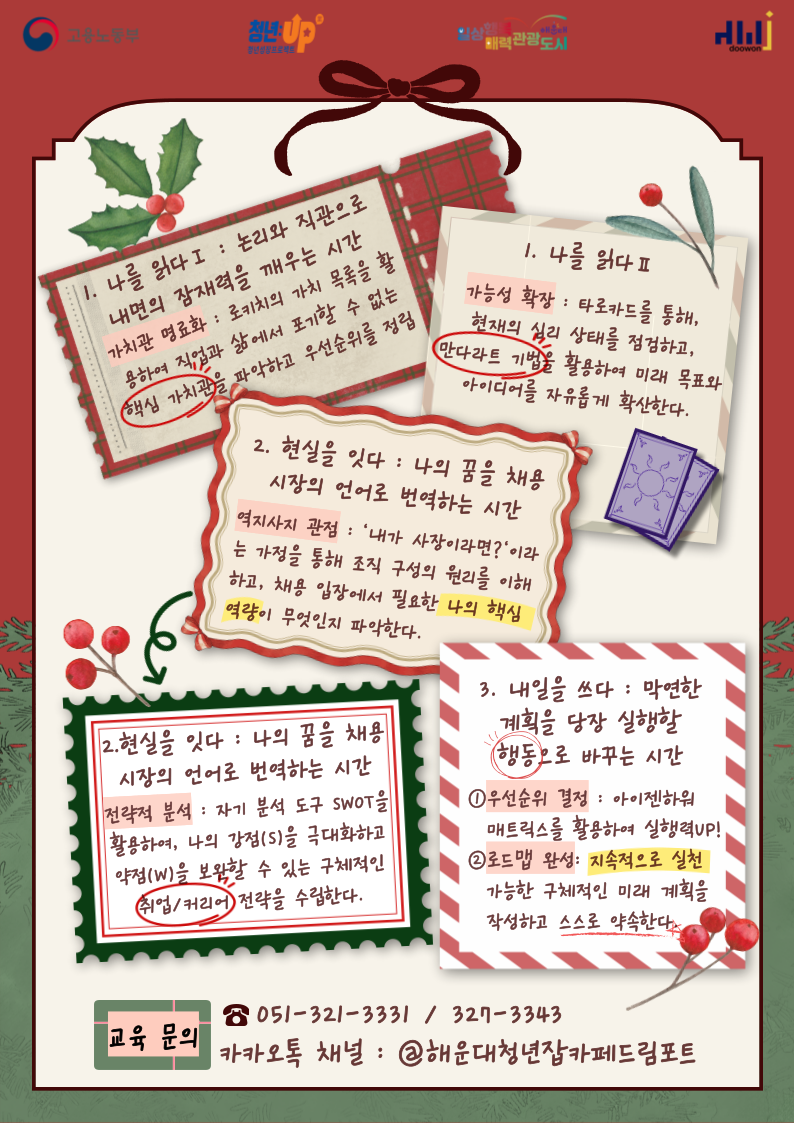 고용노동부
청년:UP
청년성장프로젝트
매력관광도시
doowon
1. 나를 읽다Ⅰ : 논리와 직관으로
내면의 잠재력을 깨우는 시간
가치관 명료화 : 로키치의 가치 목록을 활
용하여 직업과 삶에서 포기할 수 없는
핵심 가치관을 파악하고 우선순위를 정립
1. 나를 읽다Ⅱ
가능성 확장 : 타로카드를 통해,
현재의 심리 상태를 점검하고,
만다라트 기법을 활용하여 미래 목표와
아이디어를 자유롭게 확산한다.
2. 현실을 잇다 : 나의 꿈을 채용
시장의 언어로 번역하는 시간
역지사지 관점 : '내가 사장이라면?'이라
는 가정을 통해 조직 구성의 원리를 이해
하고, 채용 입장에서 필요한 나의 핵심
역량이 무엇인지 파악한다.
2.현실을 잇다 : 나의 꿈을 채용
시장의 언어로 번역하는 시간
전략적 분석 : 자기 분석 도구 SWOT을
활용하여, 나의 강점(S)을 극대화하고
약점(W)을 보완할 수 있는 구체적인
취업/커리어 전략을 수립한다.
3. 내일을 쓰다 : 막연한
계획을 당장 실행할
행동으로 바꾸는 시간
①우선순위 결정 : 아이젠하워
매트릭스를 활용하여 실행력UP!
②로드맵 완성: 지속적으로 실천
가능한 구체적인 미래 계획을
작성하고 스스로 약속한다.
교육 문의
☎ 051-321-3331 / 327-3343
카카오톡 채널 : @해운대청년잡카페드림포트